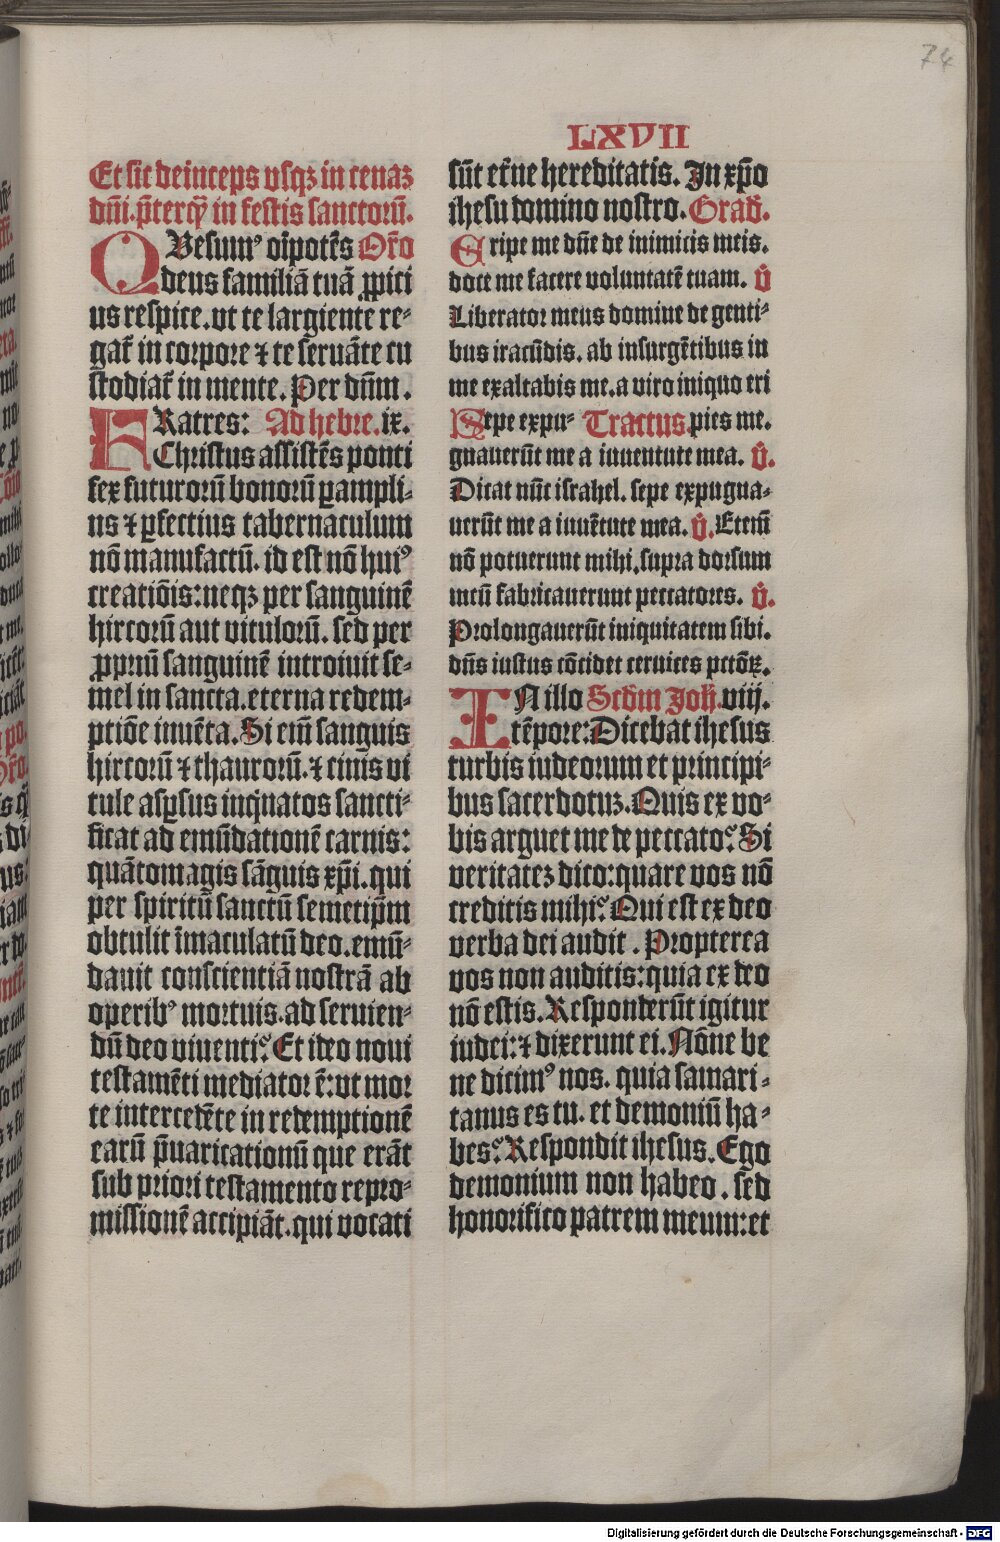 74
LXVII
Et sic deinceps vsqꝫ in cenaꝫ
dñi. p̄terq̄ in festis sanctoꝝ.
QVesumꝰ oīpotēs Or̄o
deus familiā tuā ꝓpici
us respice. vt te largiente re⸗
gat̄ in corpore ⁊ te seruāte cu
stodiat̄ in mente. Per dñm.
FRatres: Ad hebre. ix.
Christus assistēs ponti
fex futuroꝝ bonoꝝ ꝑ ampli⸗
us ⁊ ꝑfectius tabernaculum
nō manufactū. id est nō huiꝰ
creatiōis: neqꝫ per sanguinē
hircoꝝ aut vituloꝝ. sed per
ꝓpriū sanguinē introiuit se⸗
mel in sancta. eterna redem⸗
ptiōe inuēta. Si em̄ sanguis
hircoꝝ ⁊ thauroꝝ. ⁊ cinis vi
tule asꝑsus inq̇natos sancti⸗
ficat ad emūdationē carnis:
quātomagis sāguis xp̄i. qui
per spiritū sanctū semetip̄m
obtulit īmaculatū deo. emū⸗
dauit conscientiā nostrā ab
operibꝰ mortuis. ad seruien⸗
dū deo viuenti? Et ideo noui
testamēti mediator ē: vt mor
te intercedēte in redemptionē
earū p̄uaricationū que erāt
sub priori testamento repro⸗
missionē accipiāt. qui vocati
sūt et̄ne hereditatis. In xp̄o
ihesu domino nostro. Grad̄.
Eripe me dñe de inimicis meis.
doce me facere voluntatē tuam. ℣
Liberator meus domine de genti⸗
bus iracūdis. ab insurgētibus in
me exaltabis me. a viro iniquo eri
Sepe expu⸗ Tractus. pies me.
gnauerūt me a iuuentute mea. ℣.
Dicat nūc israhel. sepe expugna⸗
uerūt me a iuuētute mea. ℣. Etenī
nō potuerunt mihi. supra dorsum
meū fabricauerunt peccatores. ℣.
Prolongauerūt iniquitatem sibi.
dñs iustus cōcidet ceruices pctōꝝ.
IN illo Scd̄m Joh̄. viij.
tēpore: Dicebat ihesus
turbis iudeorum et principi⸗
bus sacerdotuꝫ. Quis ex vo⸗
bis arguet me de peccato? Si
veritateꝫ dico: quare vos nō
creditis mihi? Qui est ex deo
verba dei audit. Propterea
vos non auditis: quia ex deo
nō estis. Responderūt igitur
iudei: ⁊ dixerunt ei. Nōne be
ne dicimꝰ nos. quia samari⸗
tanus es tu. et demoniū ha⸗
bes? Respondit ihesus. Ego
demonium non habeo. sed
honorifico patrem meum: et
Digitalisierung gefördert durch die Deutsche Forschungsgemeinschaft - DFG